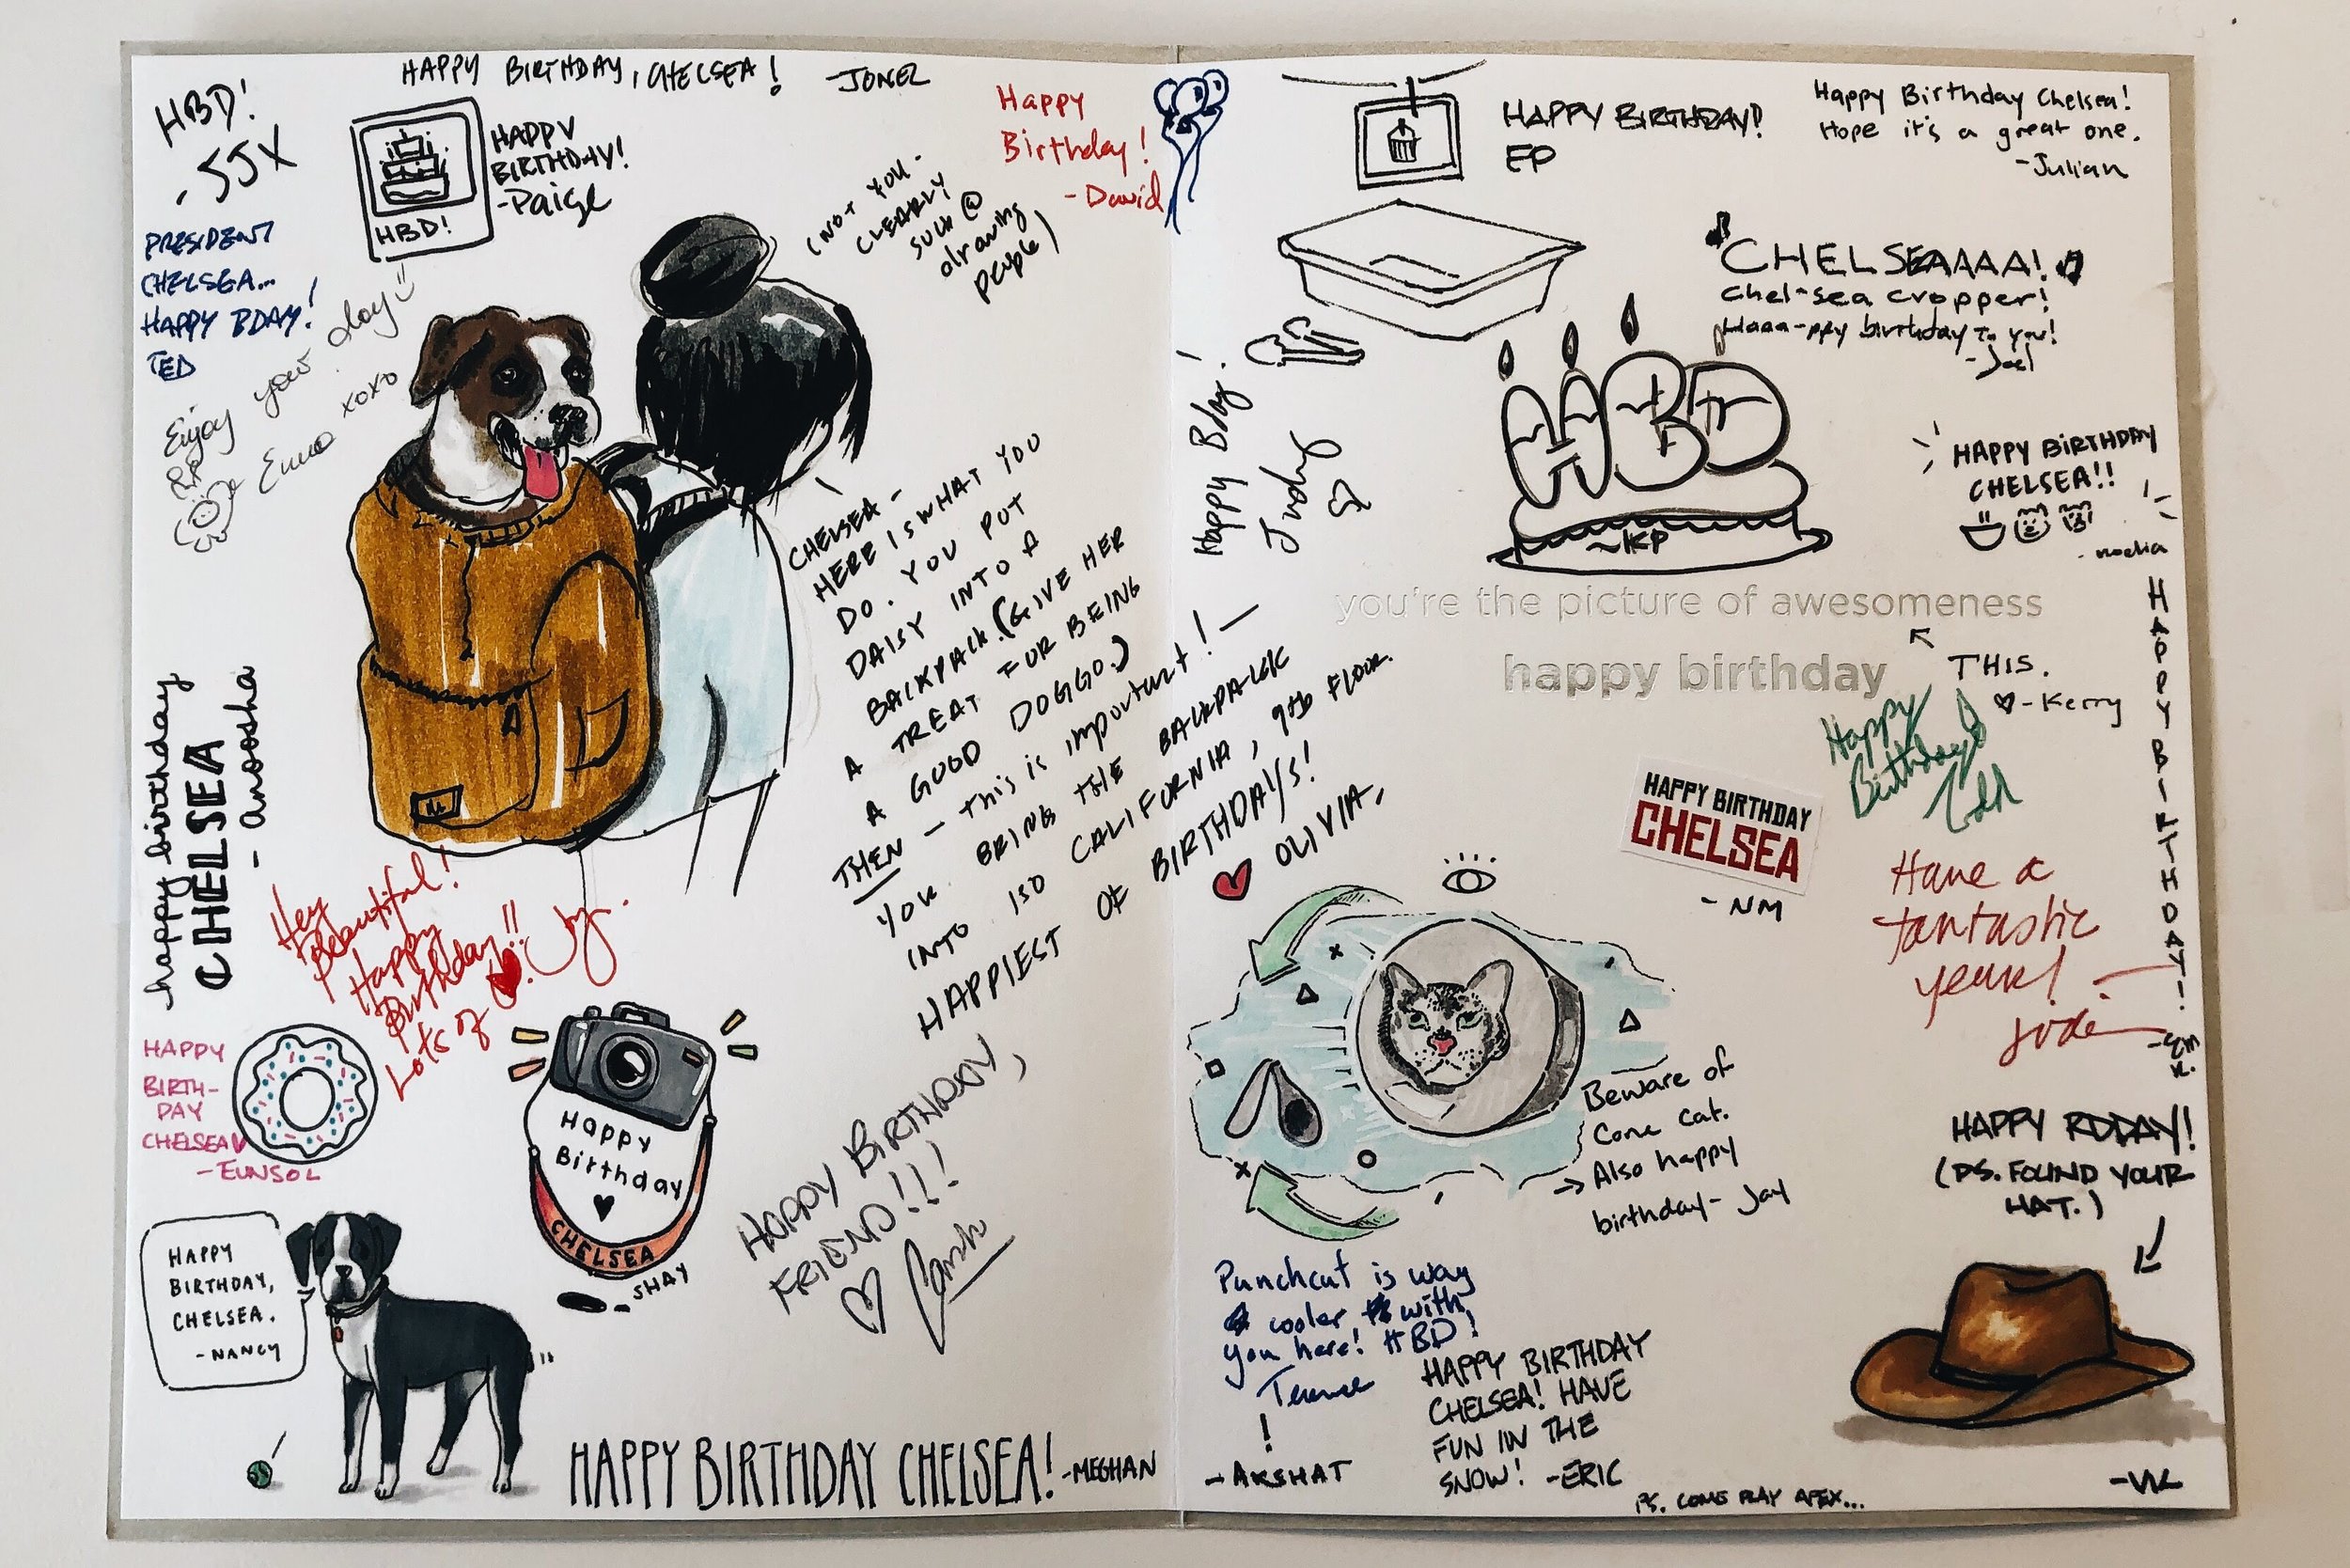 HBD!
- JJX
HAPPY BIRTHDAY, CHELSEA! -JONEL
HBD!
HAPPY
BIRTHDAY!
-Paige
Happy
Birthday!
- David
(NOT YOU -
CLEARLY
SUCK @
drawing
people)
PRESIDENT
CHELSEA...
HAPPY BDAY!
TED
Enjoy your day
xoxo
CHELSEA -
HERE IS WHAT YOU
DO. YOU PUT
DAISY INTO A
BACKPACK. (GIVE HER
A TREAT FOR BEING
A GOOD DOGGO.)
THEN - this is important! -
YOU BRING THE BACKPACK
INTO 150 CALIFORNIA, 9th FLOOR.
HAPPIEST OF BIRTHDAYS!
OLIVIA.
happy birthday
CHELSEA
- anoosha
Hey
Beautiful!
Happy
Birthday!!
Lots of
Joy.
HAPPY
BIRTH-
DAY
CHELSEA
- EUNSOL
Happy
Birthday
CHELSEA
- SHAY
HAPPY
BIRTHDAY,
CHELSEA.
- NANCY
HAPPY BIRTHDAY,
FRIEND!!!
HAPPY BIRTHDAY CHELSEA! -MEGHAN
HAPPY BIRTHDAY!
EP
Happy Birthday Chelsea!
Hope it's a great one.
-Julian
CHELSEAAAAA!
Chel-sea cropper!
Haaa-ppy birthday to you!
- Joel
Happy Bday!
Judy
HBD
~KP
HAPPY BIRTHDAY
CHELSEA!!
- noelia
you're the picture of awesomeness
happy birthday
THIS.
- Kerry
Happy
Birthday
HAPPY BIRTHDAY
CHELSEA
- NM
HAPPY BIRTHDAY!
Have a
fantastic
year!
Beware of
Cone Cat.
Also happy
birthday - Jay
HAPPY BDDAY!
(PS. FOUND YOUR
HAT.)
- VK
Punchcut is way
cooler with
you here! HBD!
Terence
!
- AKSHAT
HAPPY BIRTHDAY
CHELSEA! HAVE
FUN IN THE
SNOW! -ERIC
PS. COME PLAY APEX...